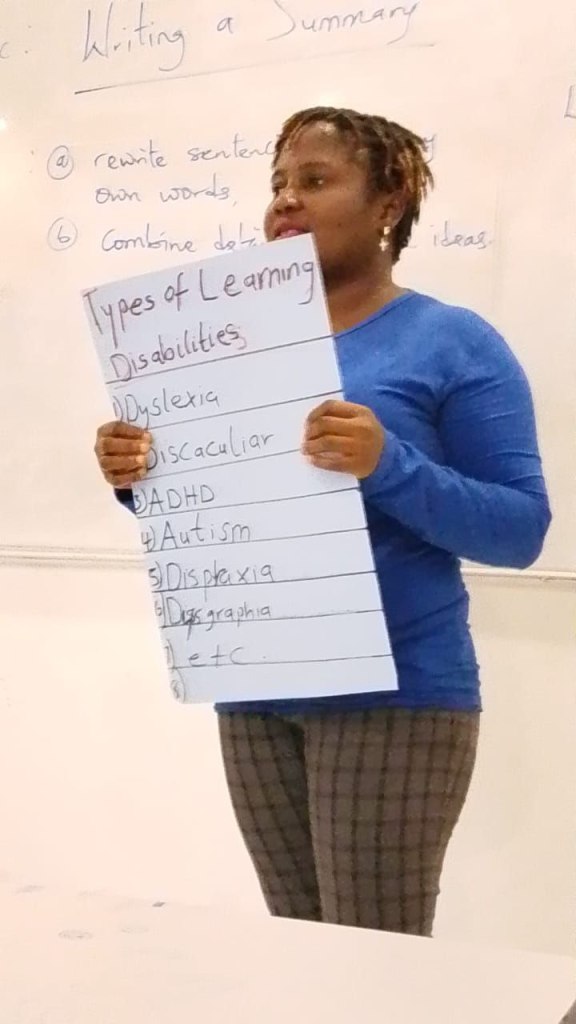 Writing a Summary
(a) rewrite
own words,
(b) Combine ideas.
Types of Learning
Disabilities
1) Dyslexia
Discaculiar
3) ADHD
4) Autism
5) Displaxia
6) Dysgraphia
7) etc.
8)